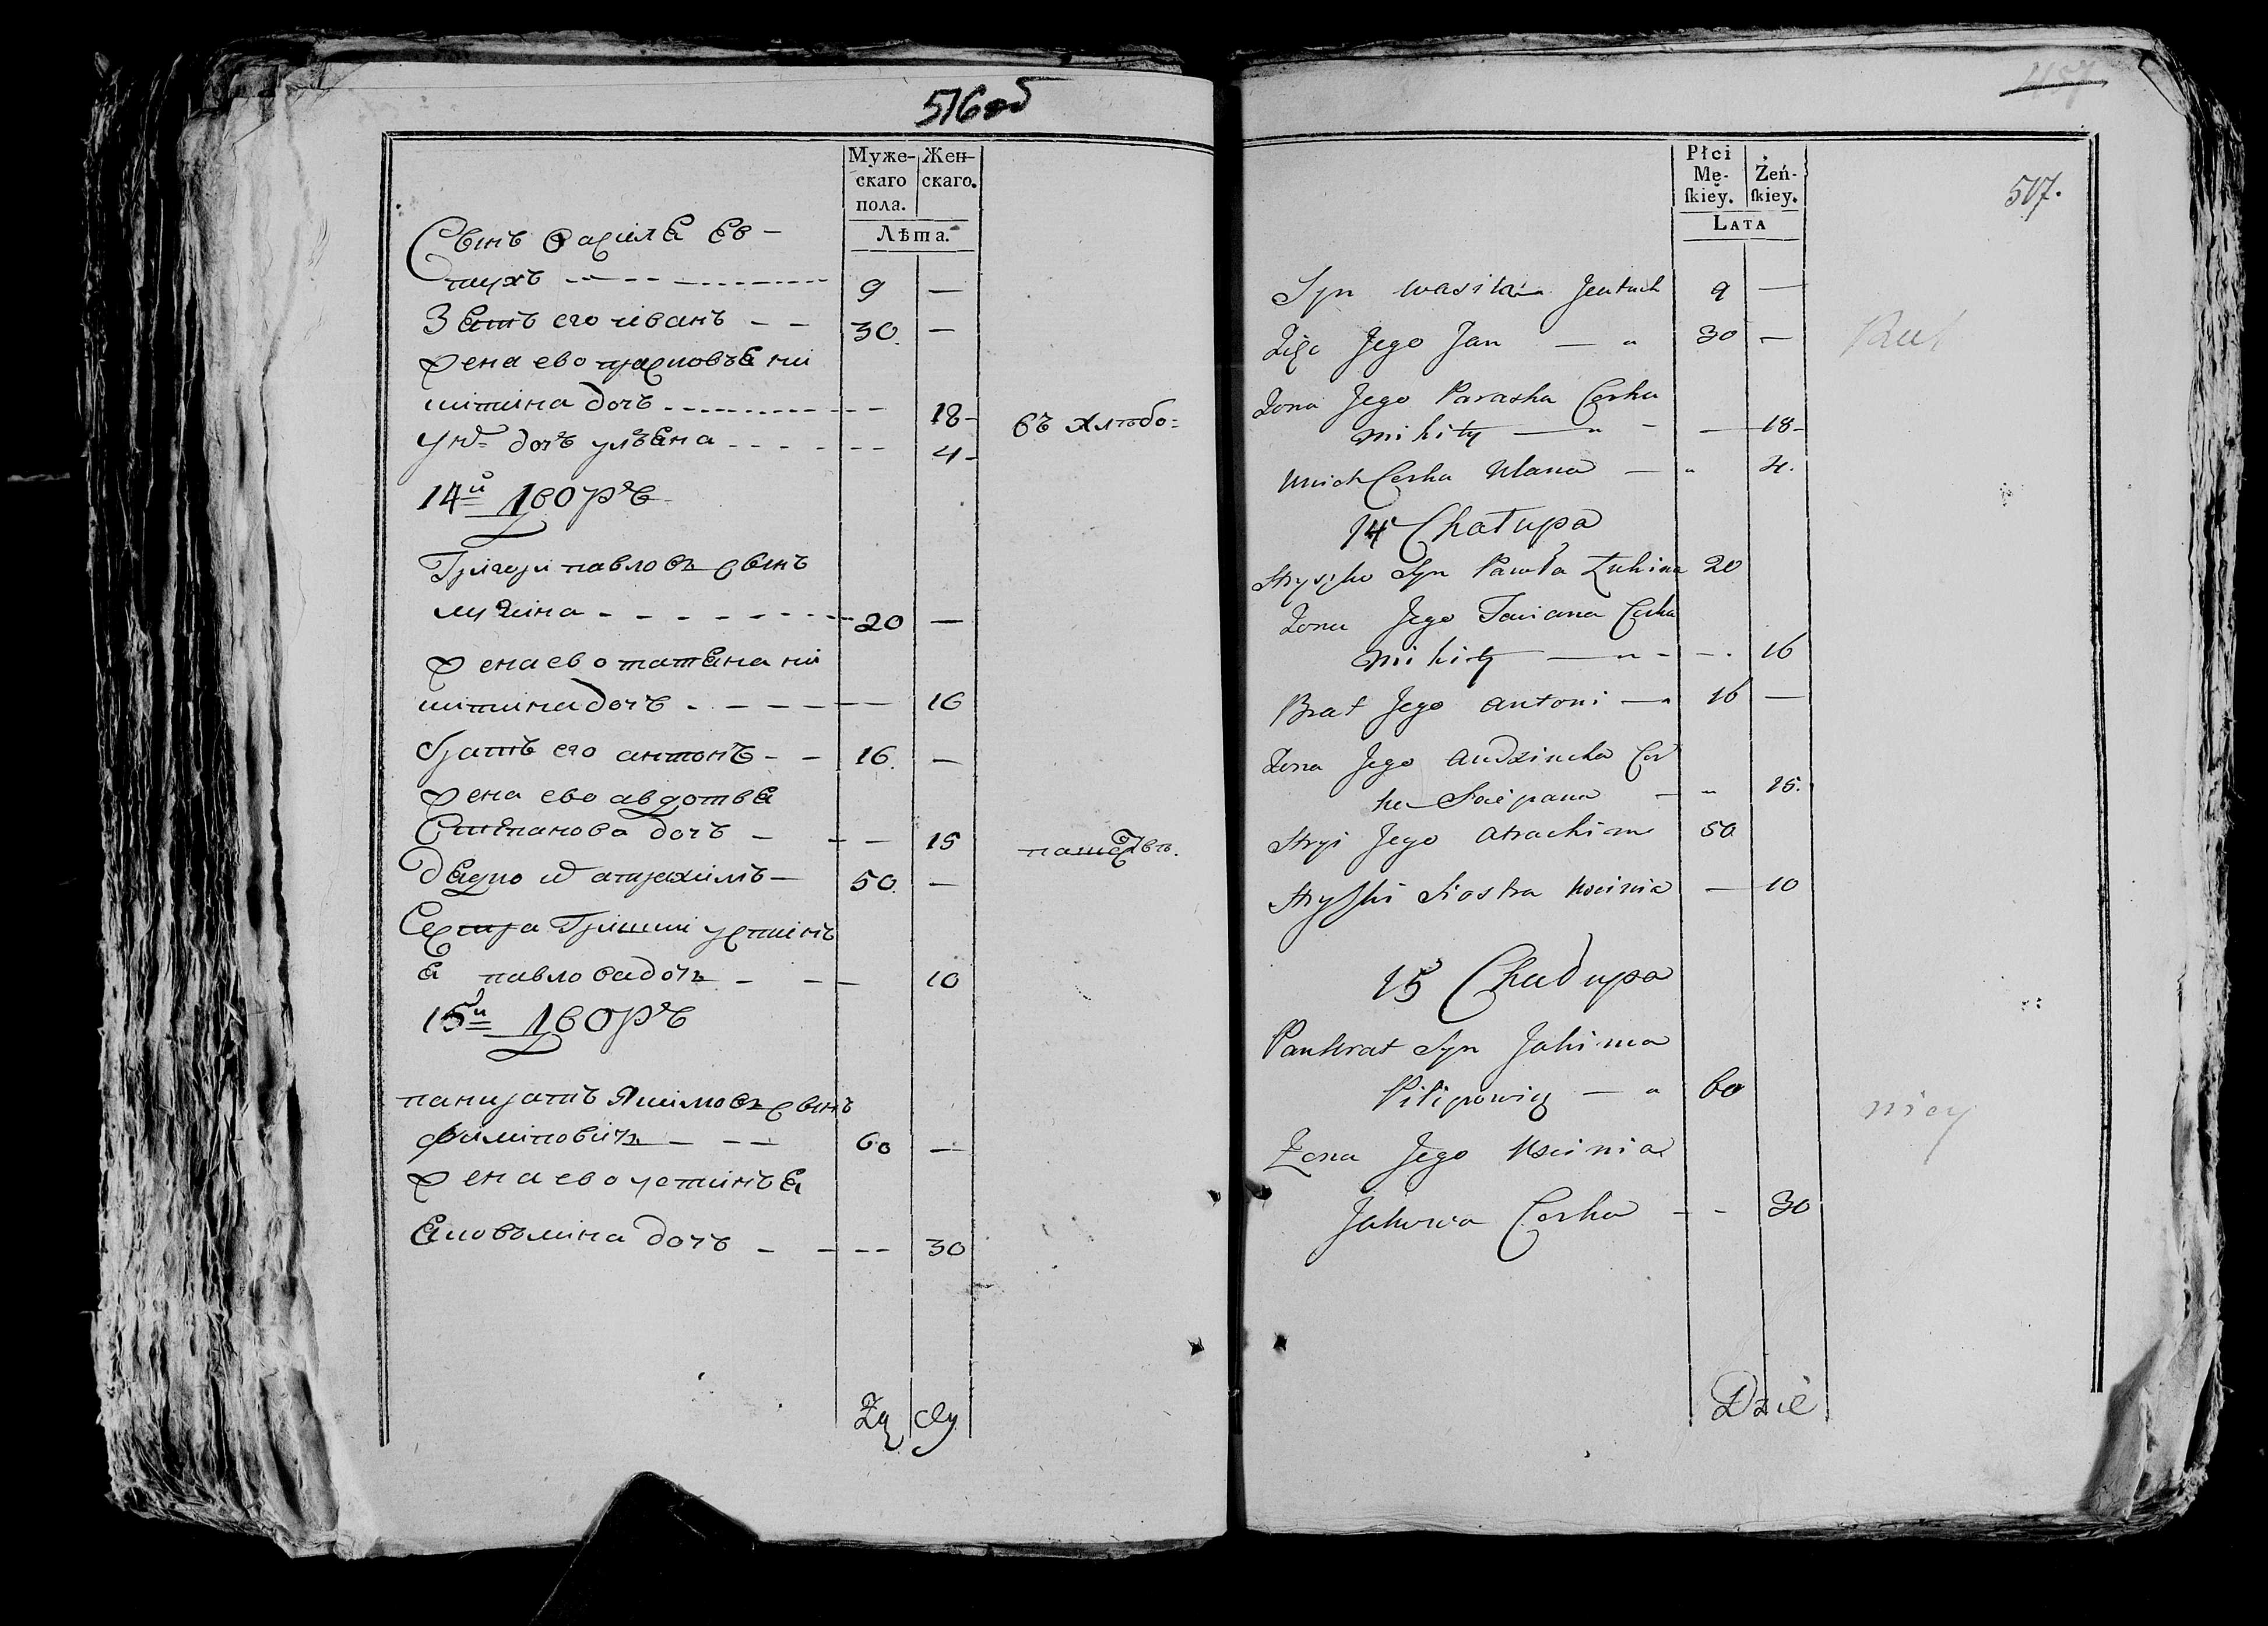 516об
Муже-
скаго
пола.
Жен-
скаго.
Лѣта.
Сынъ василя ев-
тухъ 9 —
Зять его иванъ — — 30. —
жена ево прасковъя ни
китина дочъ 18-
у них дочъ улъяна 4-
въ хлѣбо=
14й дворъ
Григори павловъ сынъ
лукина 20 —
жена ево татяна ни
китина дочъ 16
братъ его антонъ — — 16. —
жена ево авдотъя
Степанова дочъ — — — 15
пашествъ.
Дядко и атрахимъ — 50. —
Сестра Гришки устинъ
я павлова дочъ — — — 10
15й дворъ
панкратъ якимовъ сынъ
филиповичъ — — — 60 —
жена ево устинъя
яковълина дочъ — — — — 30
457
507.
Płci
Mę-
ſkiey.
Żeń-
ſkiey.
LATA
Syn wasila Jeutuch 9 —
Zięć Jego Jan — " 30 —
Żona Jego Paraska Corka
Mikity — " — — 18-
Unich Corka Ulana — " 4.
14 Chałupa
Hryszko Syn Pawła Łukina 20
Żona Jego Taciana Corka
Mikity — " — — 16
Brat Jego Antoni — " 16 —
Żona Jego Audziucha Cor
ka Sciepana — " 15.
Stryi Jego Atrachim 50
Hryszki Siostra Uscinia — 10
15 Chałupa
Pankrat Syn Jakima
Pilipowicz — " 60
Żona Jego Uscinia
Jakowa Corka — — 30
Dzie